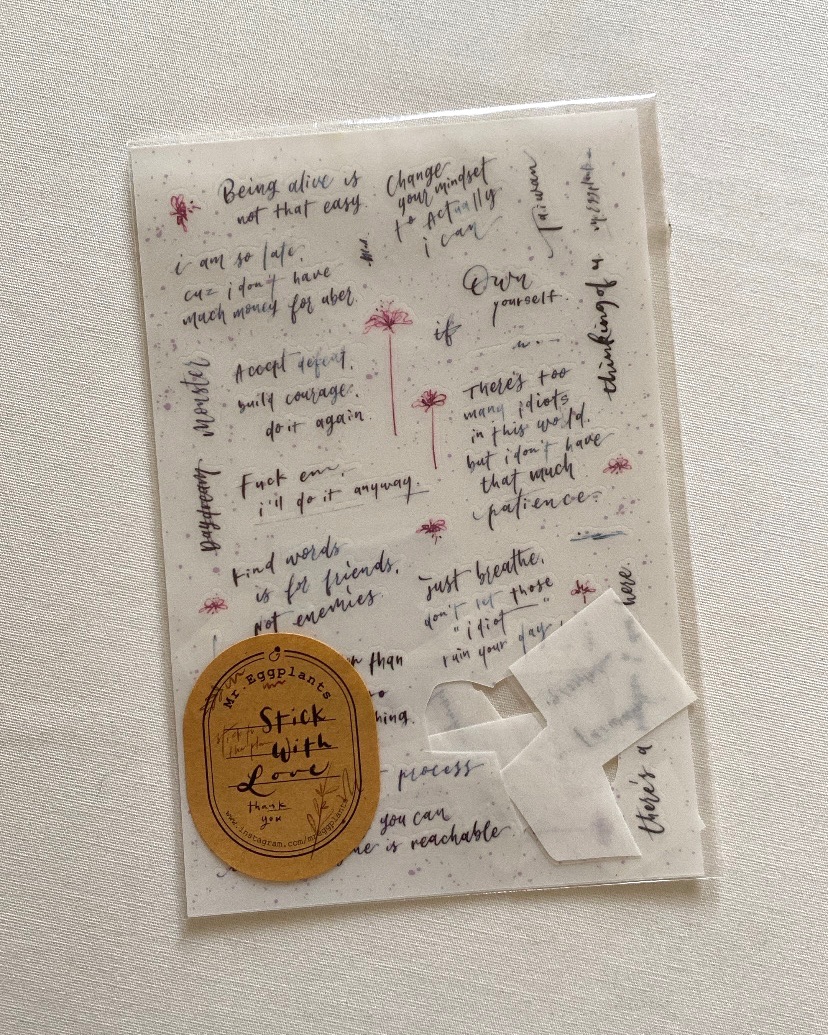 Being alive is
not that easy
Change
your mindset
to Actually
i can
Taiwan
i am so late.
cuz i don't have
much money for uber.
Own
yourself.
if
u...
thinking of u.
Monster
Accept defeat.
build courage.
do it again
There's too
many idiots
in this world.
but i don't have
that much
patience.
Daydream
Fuck em.
i'll do it anyway.
kind words
is for friends.
Not enemies.
just breathe.
don't let those
"idiot"
ruin your day.
here.
than
hing.
process
you can
is reachable
there's a
Mr. Eggplants
Stick
With
Love
thank
you
www.instagram.com/mreggplants